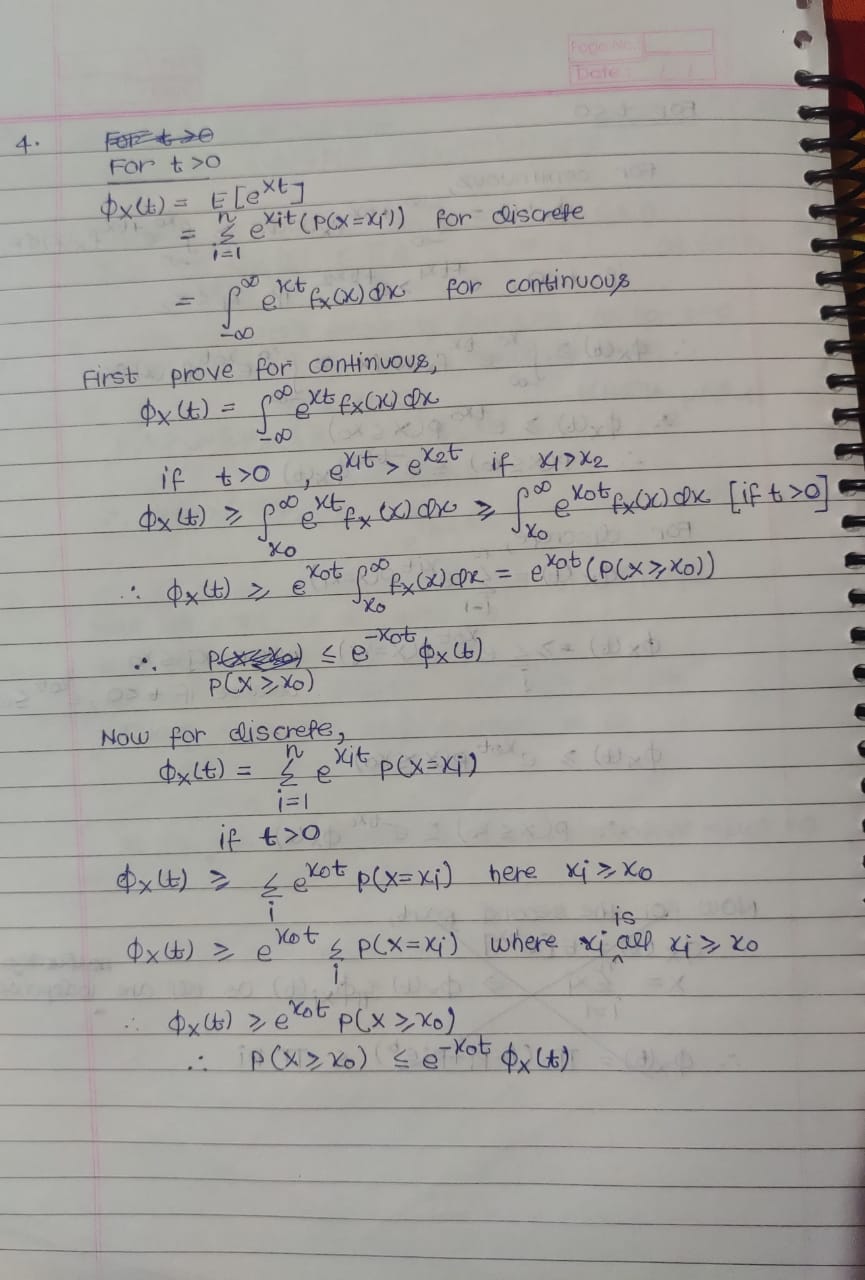 Page No.
Date: / /
4.
For t > 0
Φx(t) = E[e^{xt}]
= Σ_{i=1}^{n} e^{xit} (P(X=xi)) for discrete
= ∫_{-∞}^{∞} e^{xt} fx(x) dx for continuous
First prove for continuous,
Φx(t) = ∫_{-∞}^{∞} e^{xt} fx(x) dx
if t>0, e^{x1t} > e^{x2t} if x1>x2
Φx(t) ≥ ∫_{x0}^{∞} e^{xt} fx(x) dx ≥ ∫_{x0}^{∞} e^{x0t} fx(x) dx [if t>0]
∴ Φx(t) ≥ e^{x0t} ∫_{x0}^{∞} fx(x) dx = e^{x0t} (P(X≥x0))
∴ P(X≥x0) ≤ e^{-x0t} Φx(t)
Now for discrete,
Φx(t) = Σ_{i=1}^{n} e^{xit} P(X=xi)
if t>0
Φx(t) ≥ Σ_{i} e^{x0t} P(X=xi) here xi ≥ x0
Φx(t) ≥ e^{x0t} Σ_{i} P(X=xi) where xi is all xi ≥ x0
∴ Φx(t) ≥ e^{x0t} P(X≥x0)
∴ P(X≥x0) ≤ e^{-x0t} Φx(t)